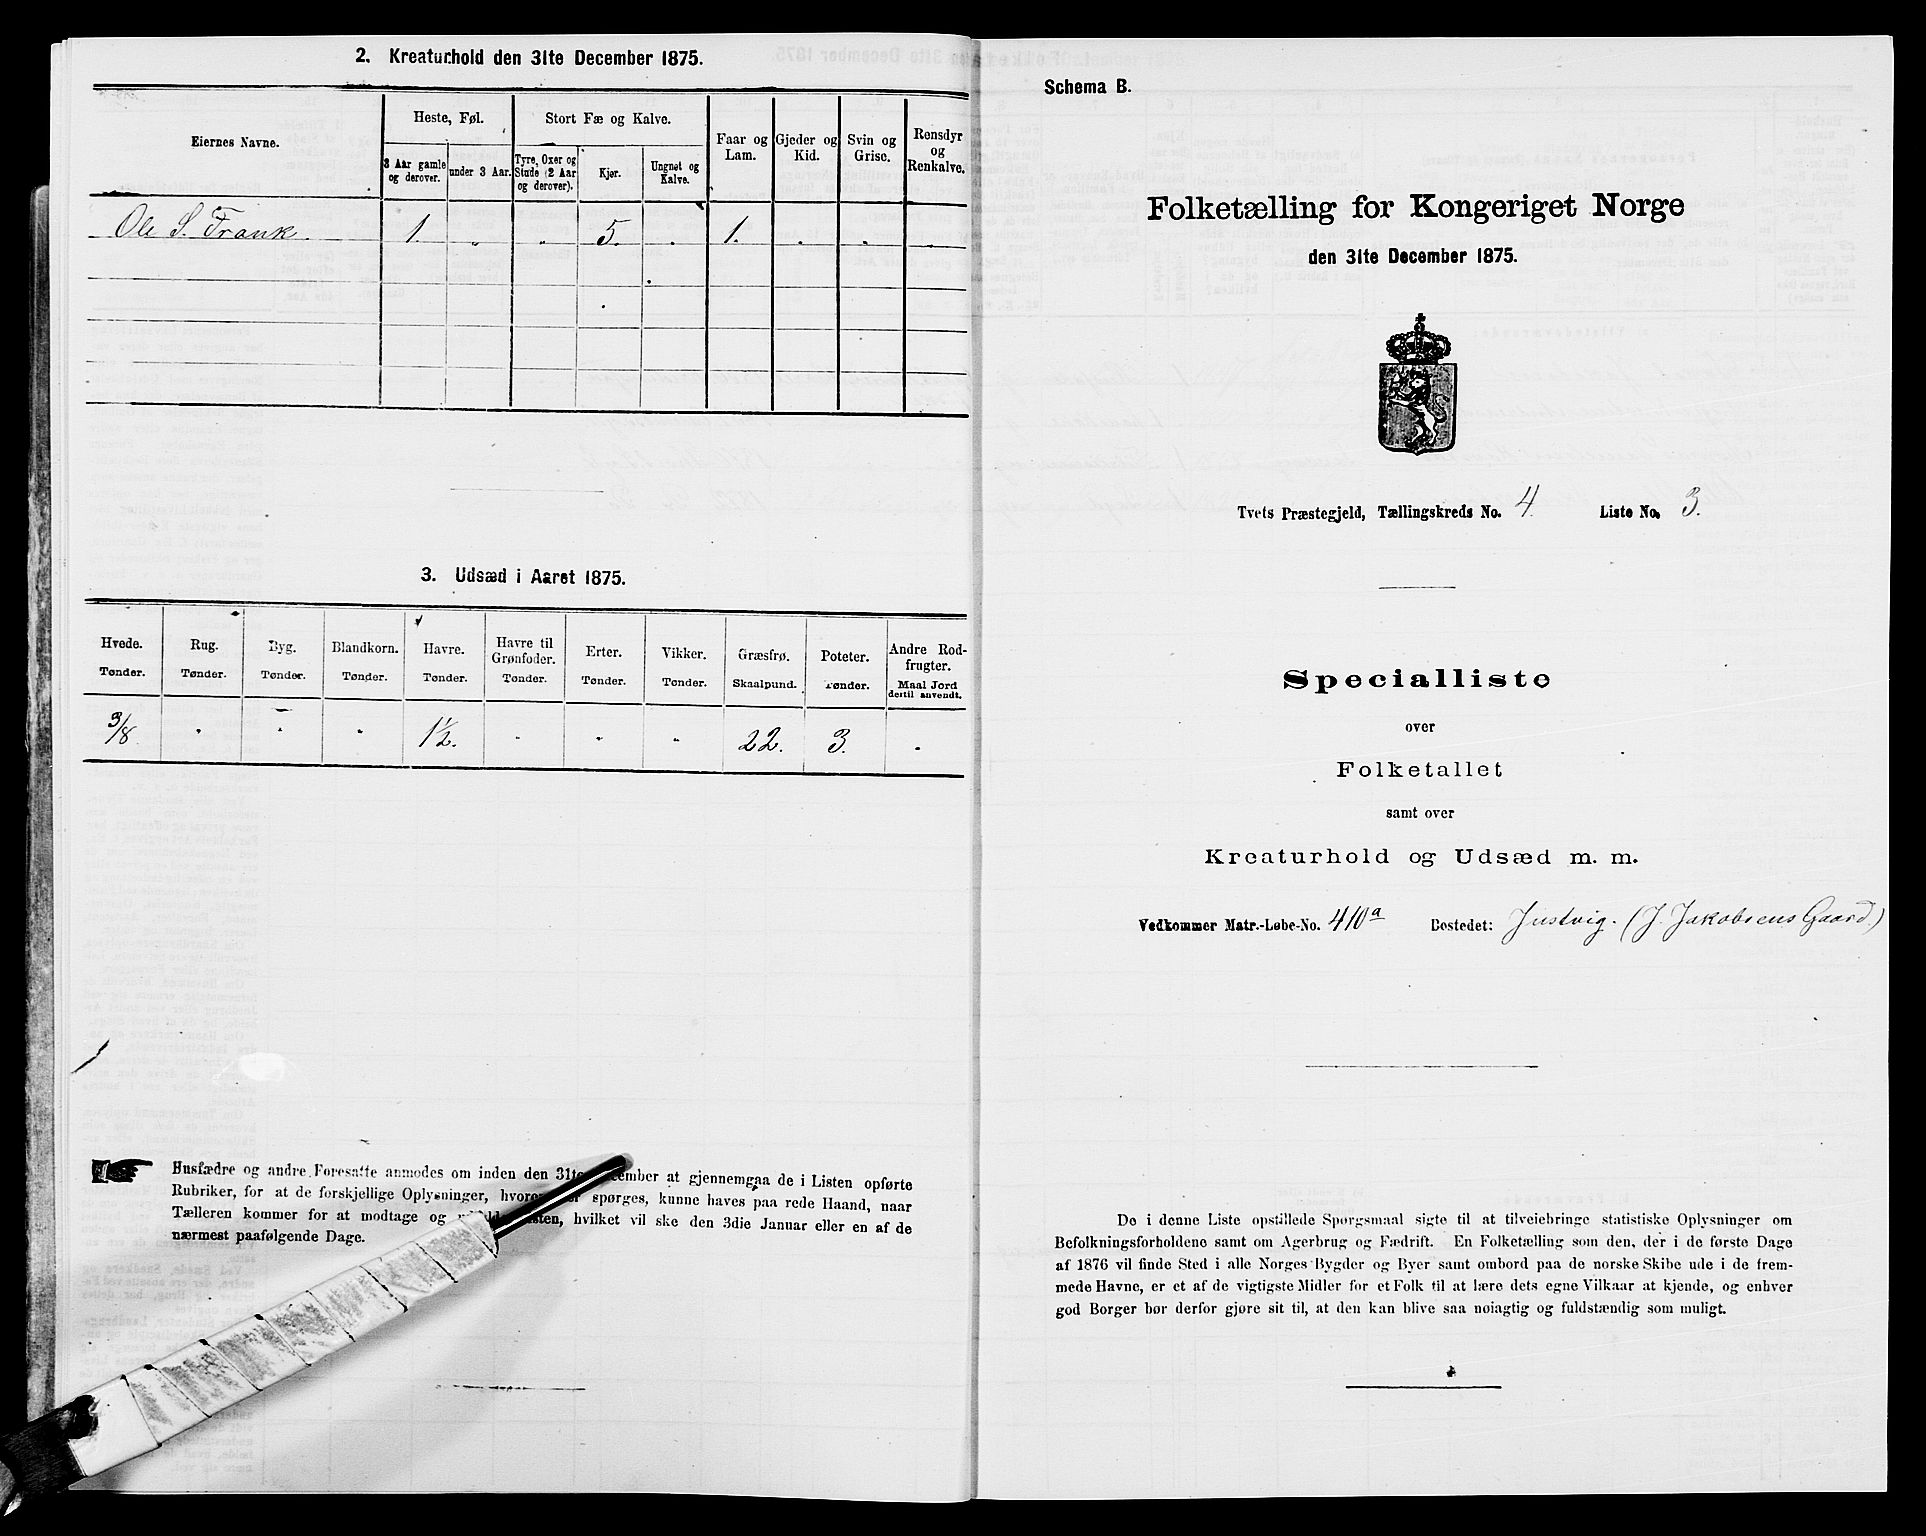 2. Kreaturhold den 31te December 1875.
Eiernes Navne.
Heste, Føl.
3 Aar gamle og derover.
under 3 Aar.
Stort Fæ og Kalve.
Tyre, Oxer og Stude (2 Aar og derover).
Kjør.
Ungnøt og Kalve.
Faar og Lam.
Gjeder og Kid.
Svin og Grise.
Rensdyr og Renkalve.
Ole S. Frank. 1. " " 5. . 1. . . .
3. Udsæd i Aaret 1875.
Hvede. Tønder.
Rug. Tønder.
Byg. Tønder.
Blandkorn. Tønder.
Havre. Tønder.
Havre til Grønfoder. Tønder.
Erter. Tønder.
Vikker. Tønder.
Græsfrø. Skaalpund.
Poteter. Tønder.
Andre Rodfrugter. Maal Jord dertil anvendt.
3/8 " " " 1½. " " " 22. 3. "
Husfædre og andre Foresatte anmodes om inden den 31te December at gjennemgaa de i Listen opførte
Rubriker, for at de forskjellige Oplysninger, hvorom der spørges, kunne haves paa rede Haand, naar
Tælleren kommer for at modtage og udfylde Listen, hvilket vil ske den 3die Januar eller en af de
nærmest paafølgende Dage.
Schema B.
Folketælling for Kongeriget Norge
den 31te December 1875.
Tvets Præstegjeld, Tællingskreds No. 4. Liste No. 3.
Specialliste
over
Folketallet
samt over
Kreaturhold og Udsæd m. m.
Vedkommer Matr.-Løbe-No. 410a Bostedet: Justvig. (J. Jakobsens Gaard.)
De i denne Liste opstillede Spørgsmaal sigte til at tilveiebringe statistiske Oplysninger om
Befolkningsforholdene samt om Agerbrug og Fædrift. En Folketælling som den, der i de første Dage
af 1876 vil finde Sted i alle Norges Bygder og Byer samt ombord paa de norske Skibe ude i de frem-
mede Havne, er et af de vigtigste Midler for et Folk til at lære dets egne Vilkaar at kjende, og enhver
god Borger bør derfor gjøre sit til, at den kan blive saa nøiagtig og fuldstændig som muligt.